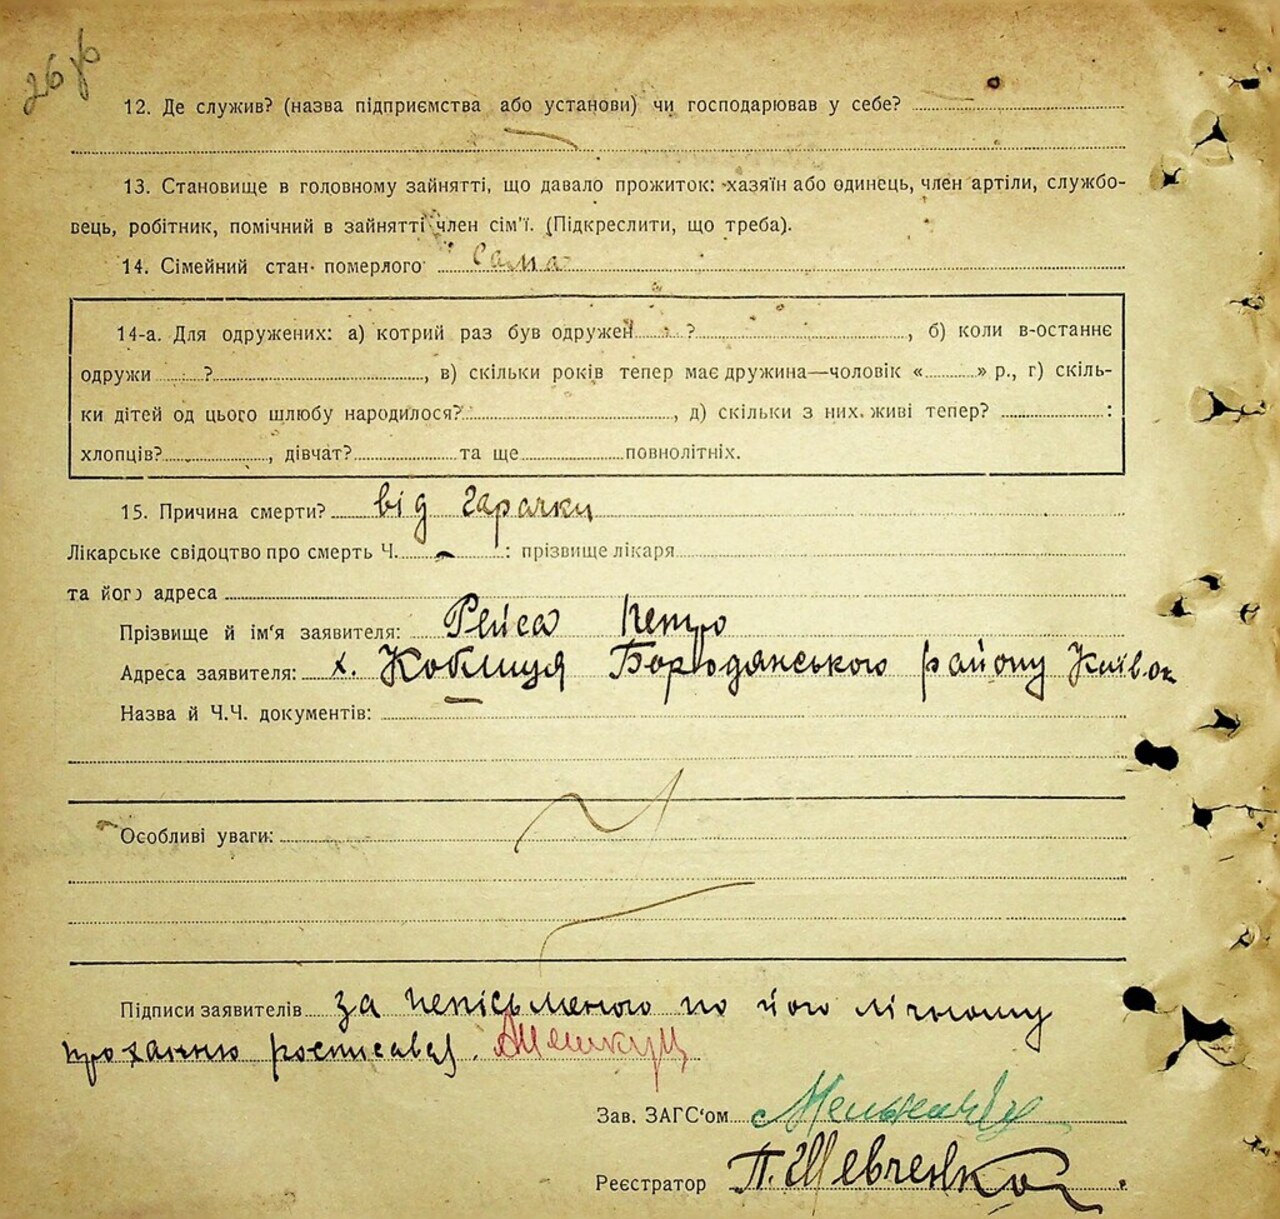 26
12. Де служив? (назва підприємства або установи) чи господарював у себе?
13. Становище в головному зайнятті, що давало прожиток: хазяїн або одинець, член артілі, службо-
вець, робітник, помічний в зайнятті член сім'ї. (Підкреслити, що треба).
14. Сімейний стан померлого сама
14-а. Для одружених: а) котрий раз був одружен ?, б) коли в-останнє
одружи ?, в) скільки років тепер має дружина—чоловік « » р., г) скіль-
ки дітей од цього шлюбу народилося?, д) скільки з них живі тепер? :
хлопців?, дівчат? та ще повнолітніх.
15. Причина смерти? від гарачки
Лікарське свідоцтво про смерть Ч. - : прізвище лікаря
та його адреса
Прізвище й ім'я заявителя: Рейса Петро
Адреса заявителя: х. Коблиця Бородянського району Київ ок
Назва й Ч.Ч. документів: —
Особливі уваги:
Підписи заявителів за непісьменого по його лічному
проханню росписався.
Зав. ЗАГС'ом
Реєстратор П. Шевченко